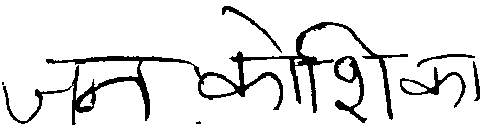 जन कोशिका